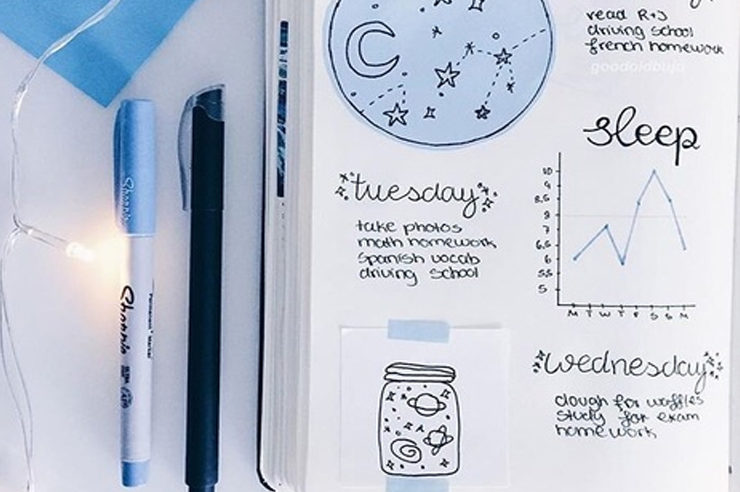 read R+J
driving school
french homework
goodoldbujo
sleep
10
8.5
8
7
6.5
6
5.5
5
M T W T F S S M
*tuesday*
take photos
math homework
Spanish vocab
driving school
*wednesday*
dough for waffles
study for exam
homework
Sharpie
Sharpie
Permanent Marker